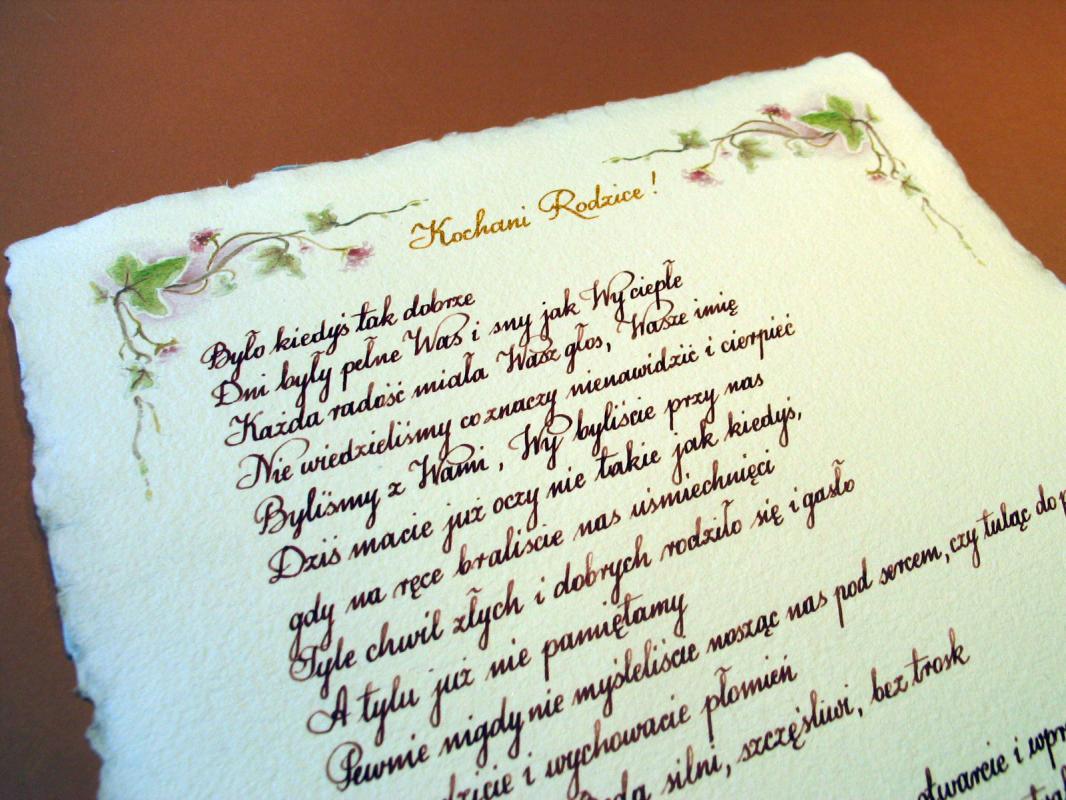 Kochani Rodzice!
Było kiedyś tak dobrze
Dni były pełne Was i sny jak Wy ciepłe
Każda radość miała Wasz głos, Wasze imię
Nie wiedzieliśmy co znaczy nienawidzić i cierpieć
Byliśmy z Wami, Wy byliście przy nas
Dziś macie już oczy nie takie jak kiedyś,
gdy na ręce braliście nas uśmiechnięci
Tyle chwil złych i dobrych rodziło się i gasło
A tylu już nie pamiętamy
Pewnie nigdy nie myśleliście nosząc nas pod sercem, czy tuląc do
i wychowacie płomień
silni, szczęśliwi, bez trosk
otwarcie i